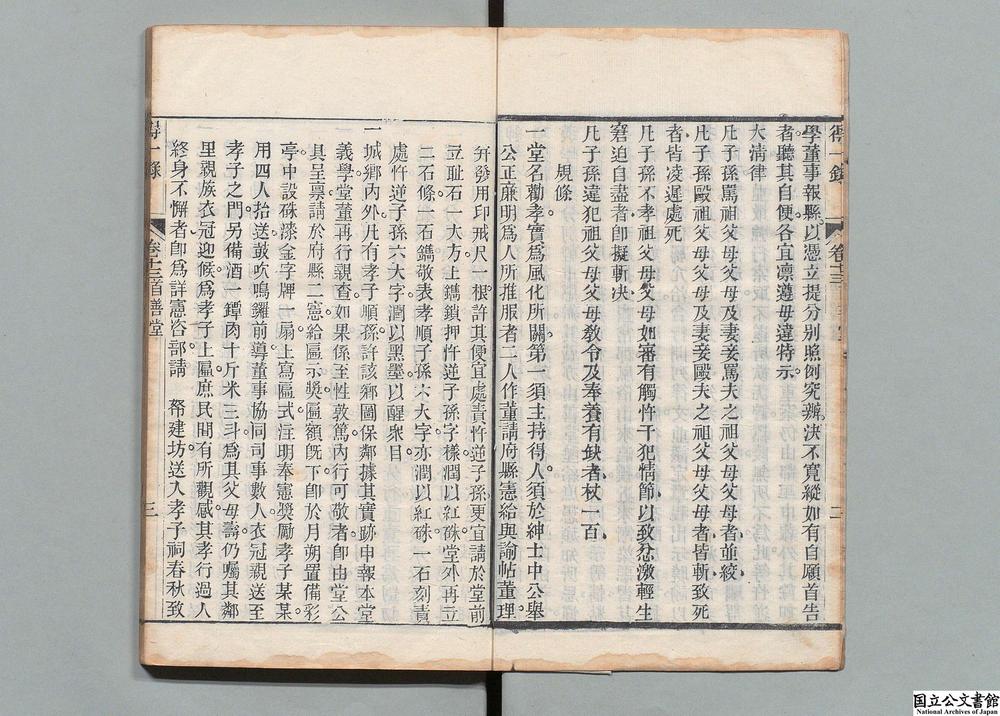 得一錄 卷十三 二
學董事報縣以憑立提分別照例究辦決不寬縱如有自願首告
者聽其自便各宜凛遵毋違特示
大清律
凡子孫罵祖父母父母及妻妾罵夫之祖父母父母者並絞
凡子孫毆祖父母父母及妻妾毆夫之祖父母父母者皆斬致死
者皆凌遲處死
凡子孫不孝祖父母父母如審有觸忤干犯情節以致忿激輕生
窘迫自盡者卽擬斬決
凡子孫違犯祖父母父母敎令及奉養有缺者杖一百
規條
一堂名勸孝實爲風化所關第一須主持得人須於紳士中公舉
公正廉明爲人所推服者二人作董請府縣憲給與諭帖董理
幷發用印戒尺一根許其便宜處責忤逆子孫更宜請於堂前
豆恥石一大方上鐫鎖押忤逆子孫字樣潤以紅硃堂外再立
二石條一石鐫敬表孝順子孫六大字亦潤以紅硃一石刻責
處忤逆子孫六大字潤以黑墨以醒衆目
一城鄉內外凡有孝子順孫許該鄉圖保鄰據其實跡申報本堂
義學堂董再行親查如果係至性敦篤內行可敬者卽由堂公
具呈稟請於府縣二憲給匾示奬匾額旣下卽於月朔置備彩
亭中設硃漆金字牌一扇上寫匾式注明奉憲奬勵孝子某某
用四人抬送鼓吹鳴鑼前導董事協同司事數人衣冠親送至
孝子之門另備酒一罈肉十斤米三斗爲其父母壽仍囑其鄰
里親族衣冠迎候爲孝子上匾庶民間有所觀感其孝行過人
終身不懈者卽爲詳憲咨部請 帑建坊送入孝子祠春秋致
得一錄 卷十三 首善堂 三
国立公文書館
National Archives of Japan